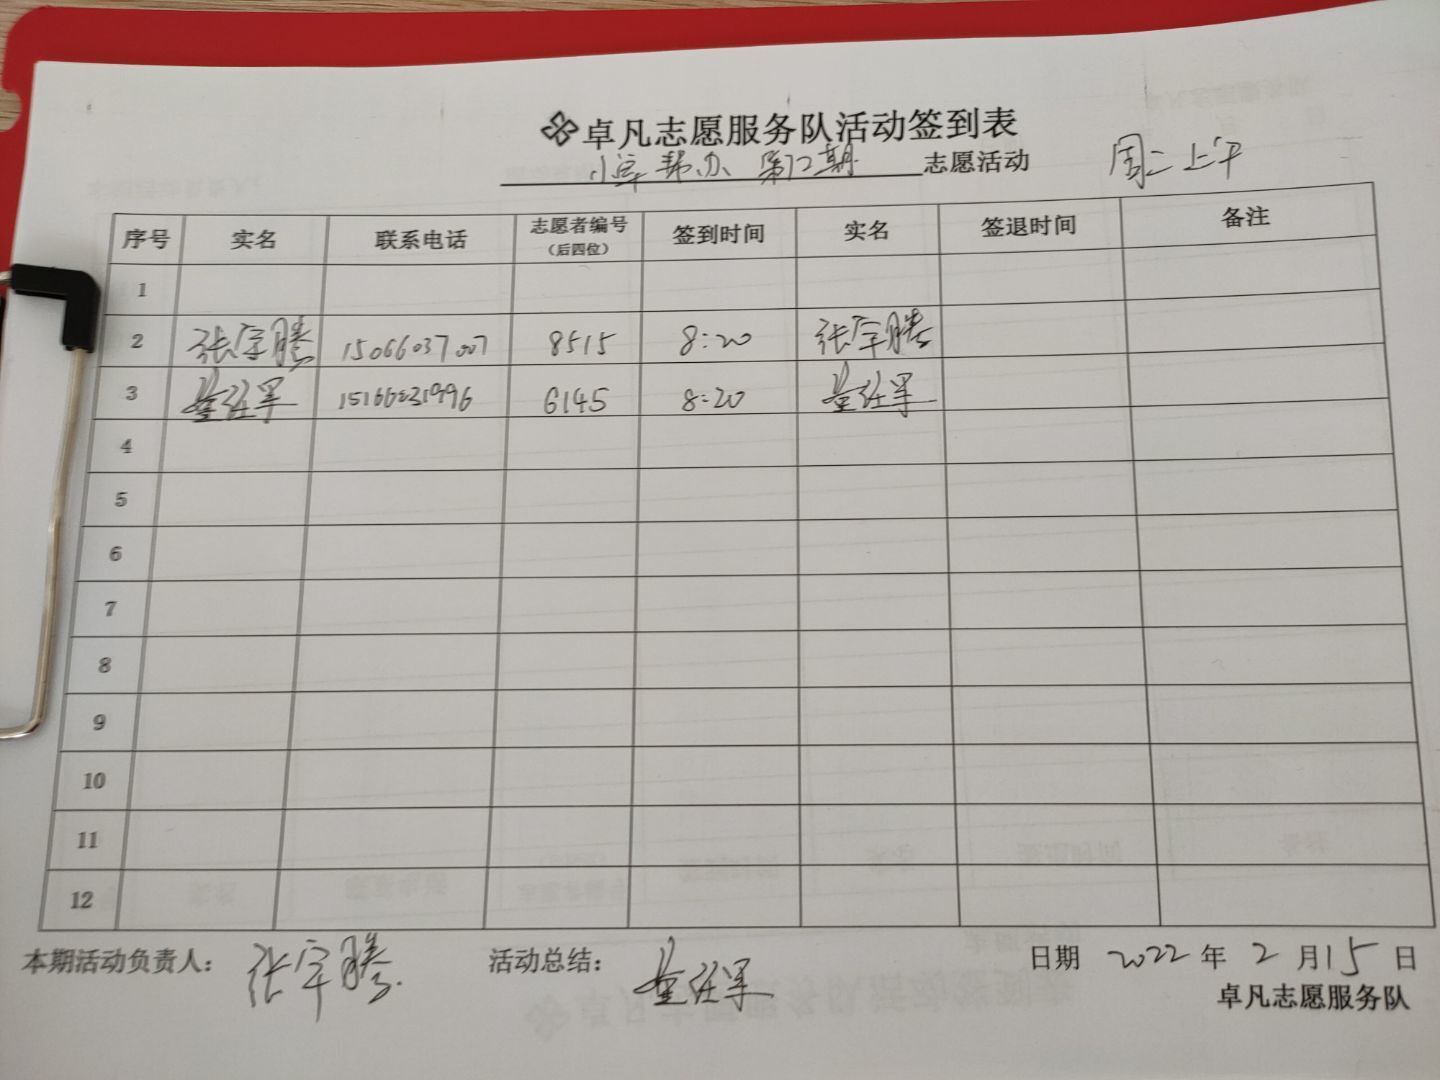 卓凡志愿服务队活动签到表
帮办 第12期 志愿活动 周二上午
序号 实名 联系电话 志愿者编号（后四位） 签到时间 实名 签退时间 备注
1
2 张宇腾 15066037007 8515 8:20 张宇腾
3 6145 8:20
4
5
6
7
8
9
10
11
12
本期活动负责人： 张宇腾 活动总结： 日期 2022 年 2 月 15 日
卓凡志愿服务队